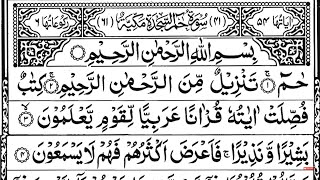 اٰیَاتُهَا ٥٤ (٤١) سُوْرَةُ حٰمٓ السَّجْدَةِ مَكِّیَّةٌ (٦١) رُكُوْعَاتُهَا ٦
بِسْمِ اللّٰهِ الرَّحْمٰنِ الرَّحِیْمِ
حٰمٓ ۚ‏﴿۱﴾ تَنْزِیْلٌ مِّنَ الرَّحْمٰنِ الرَّحِیْمِ ۚ‏﴿۲﴾ كِتٰبٌ
فُصِّلَتْ اٰیٰتُهٗ قُرْاٰنًا عَرَبِیًّا لِّقَوْمٍ یَّعْلَمُوْنَ ۙ‏﴿۳﴾
بَشِیْرًا وَّ نَذِیْرًا ۚ فَاَعْرَضَ اَكْثَرُهُمْ فَهُمْ لَا یَسْمَعُوْنَ ‏﴿۴﴾